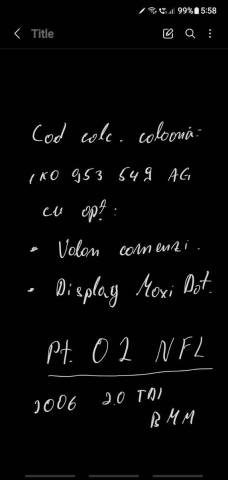 99% 5:58
Title
Cod calc. coloană:
1K0 953 549 AG
cu opț:
• Volan comenzi.
• Display Maxi Dot.
Pt. O2 NFL
2006 2.0 TDI
BMM